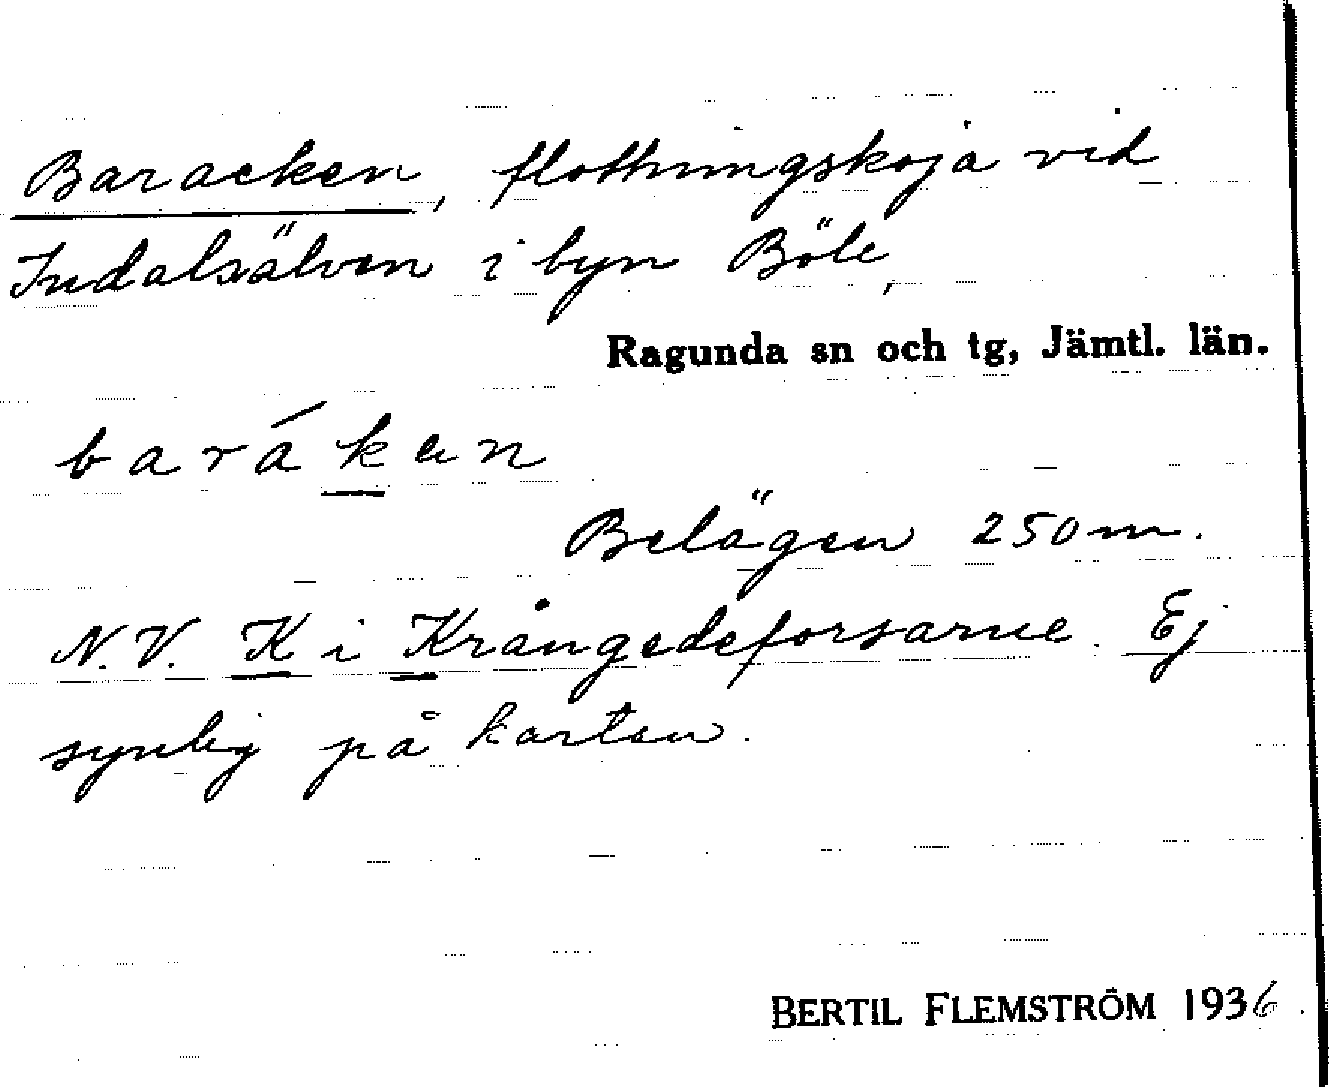 Baracken, flottningskoja vid
Indalsälven i byn Böle,
Ragunda sn och tg, Jämtl. län.
barákan
Belägen 250 m.
N.V. K i Krångedeforsarne. Ej
synlig på kartan.
BERTIL FLEMSTRÖM 1936.